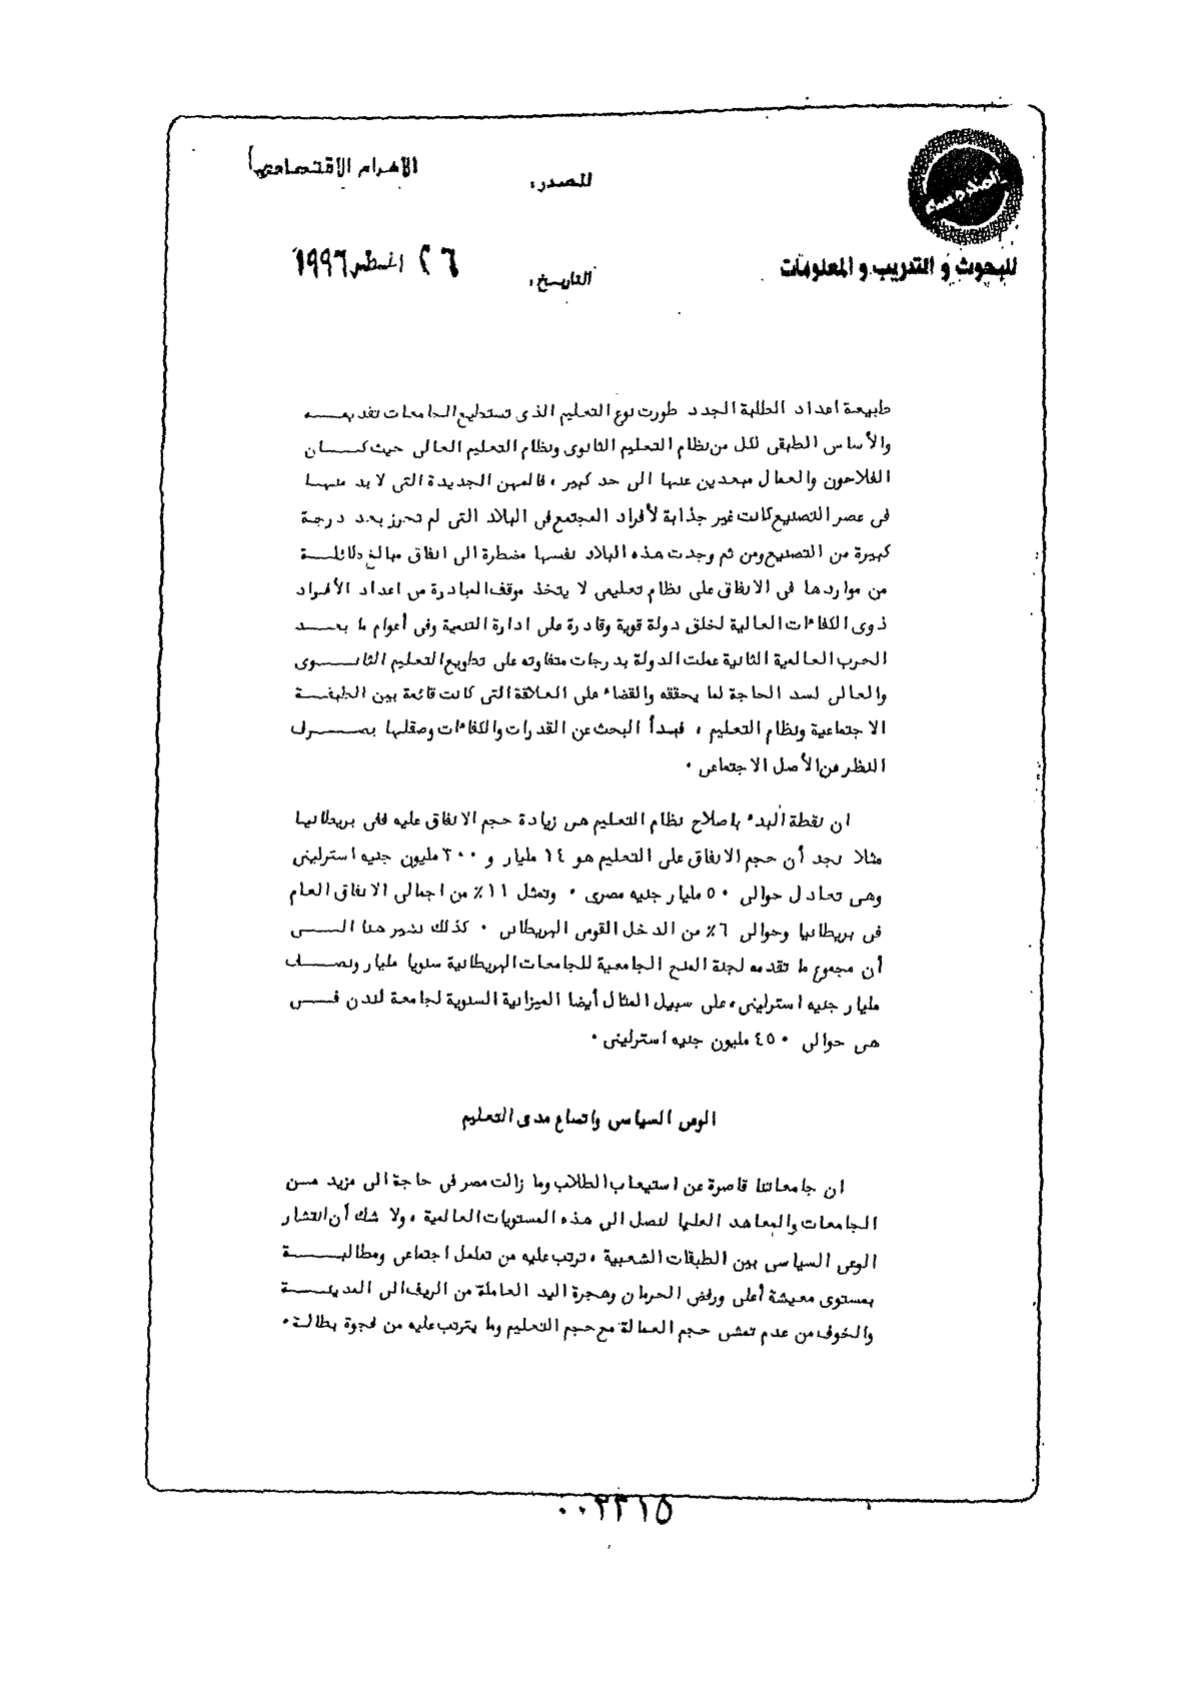 الاهرام الاقتصادى
المصدر:
للبحوث و التدريب و المعلومات
التاريخ:
٢٦ اغسطس ١٩٩٦
طبيعة اعداد الطلبة الجدد طورت نوع التعليم الذى تستطيع الجامعات تقديمه
والأساس الطبقى لكل من نظام التعليم الثانوى ونظام التعليم العالى حيث كان
الفلاحون والعمال مبعدين عنها الى حد كبير ، فالمهن الجديدة التى لا بد منها
فى عصر التصنيع كانت غير جذابة لأفراد المجتمع فى البلاد التى لم تحرز بعد درجة
كبيرة من التصنيع ومن ثم وجدت هذه البلاد نفسها مضطرة الى انفاق مبالغ طائلة
من مواردها فى الانفاق على نظام تعليمى لا يتخذ موقف المبادرة من اعداد الأفراد
ذوى الكفاءات العالية لخلق دولة قوية وقادرة على ادارة التنمية وفى أعوام ما بعد
الحرب العالمية الثانية عملت الدولة بدرجات متفاوته على تطويع التعليم الثانوى
والعالى لسد الحاجة لما يحققه والقضاء على العلاقة التى كانت قائمة بين الطبقة
الاجتماعية ونظام التعليم ، فبدأ البحث عن القدرات والكفاءات وصقلها بصرف
النظر عن الأصل الاجتماعى ٠
ان نقطة البدء باصلاح نظام التعليم هى زيادة حجم الانفاق عليه ففى بريطانيا
مثلا نجد أن حجم الانفاق على التعليم هو ١٤ مليار و ٣٠٠ مليون جنيه استرلينى
وهى تعادل حوالى ٥٠ مليار جنيه مصرى ٠ وتمثل ١١٪ من اجمالى الانفاق العام
فى بريطانيا وحوالى ٦٪ من الدخل القومى البريطانى ٠ كذلك نشير هنا الى
أن مجموع ما تقدمه لجنة المنح الجامعية للجامعات البريطانية سنويا مليار ونصف
مليار جنيه استرلينى، على سبيل المثال أيضا الميزانية السنوية لجامعة لندن فى
هى حوالى ٤٥٠ مليون جنيه استرلينى ٠
الوعى السياسى واتساع مدى التعليم
ان جامعاتنا قاصرة عن استيعاب الطلاب وما زالت مصر فى حاجة الى مزيد من
الجامعات والمعاهد العليا لنصل الى هذه المستويات العالمية ، ولا شك أن انتشار
الوعى السياسى بين الطبقات الشعبية ، ترتب عليه من تململ اجتماعى ومطالبة
بمستوى معيشة أعلى ورفض الحرمان وهجرة اليد العاملة من الريف الى المدينة
والخوف من عدم تمشى حجم العمالة مع حجم التعليم وما يترتب عليه من فجوة بطالة ٠